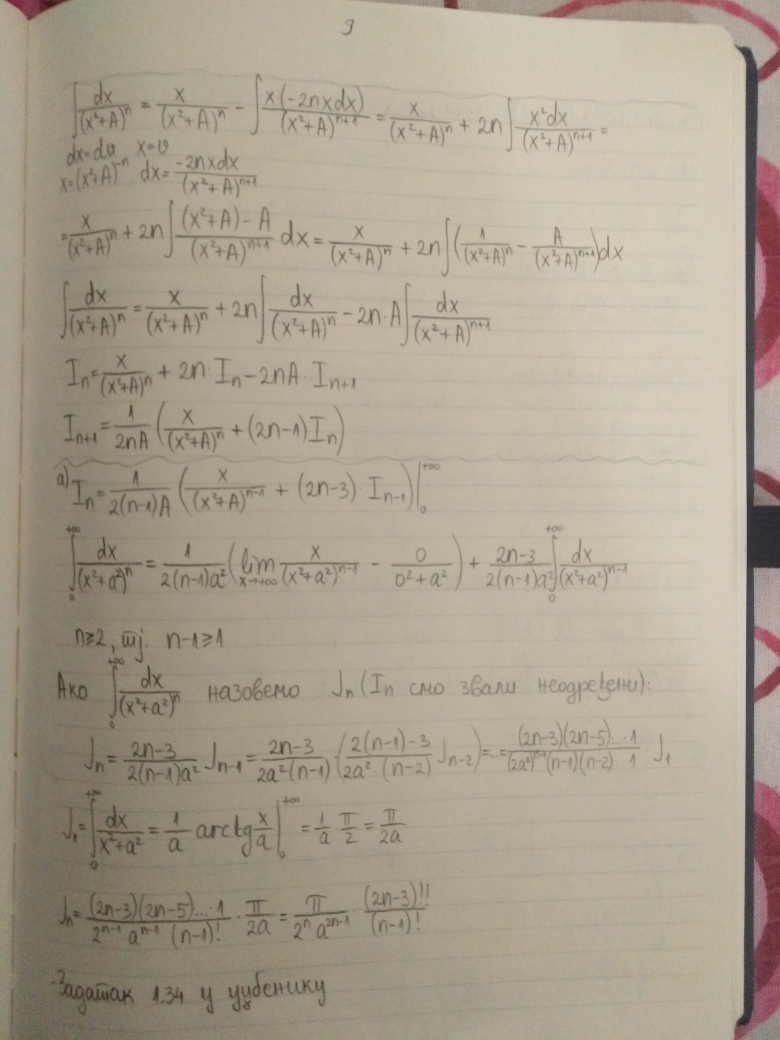 9
∫ dx/(x²+A)ⁿ = x/(x²+A)ⁿ − ∫ x(−2nxdx)/(x²+A)ⁿ⁺¹ = x/(x²+A)ⁿ + 2n ∫ x²dx/(x²+A)ⁿ⁺¹ =
dx=dυ x=υ
x=(x²+A)⁻ⁿ dx= −2nxdx/(x²+A)ⁿ⁺¹
= x/(x²+A)ⁿ + 2n ∫ ((x²+A)−A)/(x²+A)ⁿ⁺¹ dx = x/(x²+A)ⁿ + 2n ∫ (1/(x²+A)ⁿ − A/(x²+A)ⁿ⁺¹)dx
∫ dx/(x²+A)ⁿ = x/(x²+A)ⁿ + 2n ∫ dx/(x²+A)ⁿ − 2n·A ∫ dx/(x²+A)ⁿ⁺¹
Iₙ = x/(x²+A)ⁿ + 2n·Iₙ − 2nA·Iₙ₊₁
Iₙ₊₁ = 1/2nA (x/(x²+A)ⁿ + (2n−1)Iₙ)
а) Iₙ = 1/2(n−1)A (x/(x²+A)ⁿ⁻¹ + (2n−3)·Iₙ₋₁)|₀^+∞
∫₀^+∞ dx/(x²+a²)ⁿ = 1/2(n−1)a² (lim x→+∞ x/(x²+a²)ⁿ⁻¹ − 0/0²+a²) + 2n−3/2(n−1)a² ∫₀^+∞ dx/(x²+a²)ⁿ⁻¹
n≥2, тј. n−1≥1
Ако ∫₀^+∞ dx/(x²+a²)ⁿ назовемо Jₙ (Iₙ смо звали неодређени):
Jₙ = 2n−3/2(n−1)a² Jₙ₋₁ = 2n−3/2a²(n−1) · (2(n−1)−3/2a²(n−2) Jₙ₋₂) = ... = (2n−3)(2n−5)...·1/(2a²)ⁿ⁻¹(n−1)(n−2)...1 · J₁
J₁ = ∫₀^+∞ dx/x²+a² = 1/a arctg x/a |₀^+∞ = 1/a · π/2 = π/2a
Jₙ = (2n−3)(2n−5)...·1/2ⁿ⁻¹ aⁿ⁻¹ (n−1)! · π/2a = π/2ⁿ a²ⁿ⁻¹ · (2n−3)!!/(n−1)!
-Задатак 1.34 у уџбенику